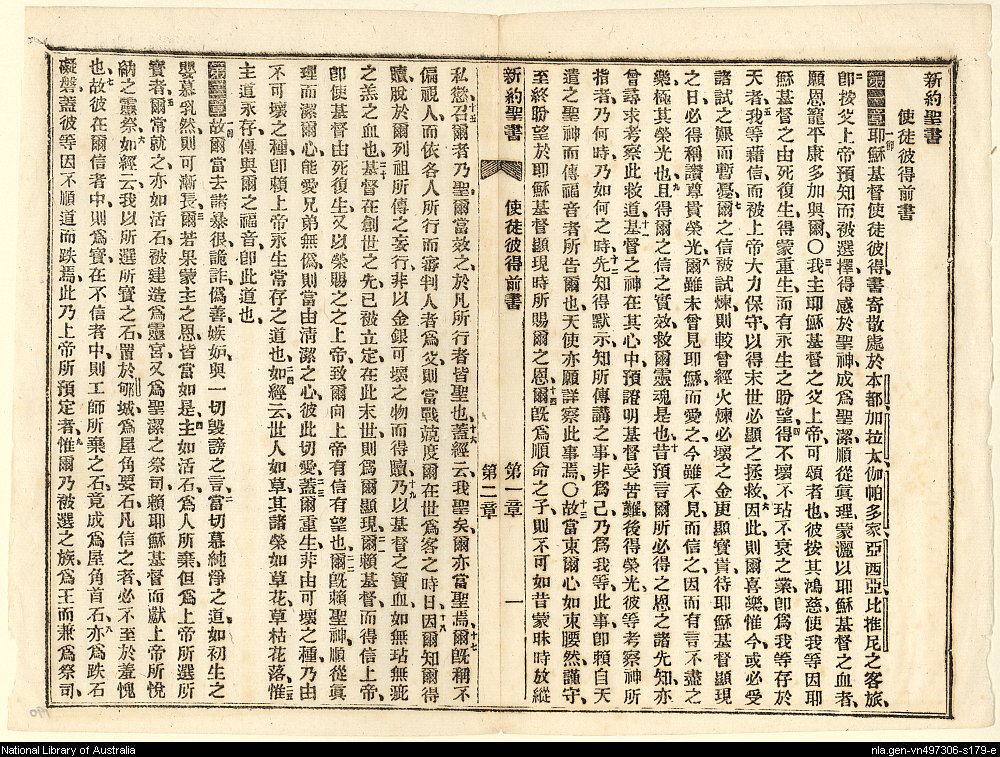 新約聖書
使徒彼得前書
第一章一節耶穌基督使徒彼得、書寄散處於本都加拉太伽帕多家亞西亞比推尼之客旅、
二卽按父上帝預知而被選擇、得感於聖神、成爲聖潔、順從眞理、蒙灑以耶穌基督之血者、
願恩寵平康多加與爾〇三我主耶穌基督之父上帝可頌者也、彼按其鴻慈、使我等因耶
穌基督之由死復生、得蒙重生、而有永生之盼望、四得不壞不玷不衰之業、卽爲我等存於
天者、五我等藉信而被上帝大力保守、以得末世必顯之拯救、六因此則爾喜樂、惟今或必受
諸試之艱而暫憂、七爾之信被試煉、則較曾經火煉必壞之金更顯寶貴、待耶穌基督顯現
之日、必得稱讚尊貴榮光、八爾雖未曾見耶穌而愛之、今雖不見而信之、因而有言不盡之
樂、極其榮光也、九且得爾之信之實效、救爾靈魂是也、十昔預言爾所必得之恩之諸先知、亦
曾尋求考察此救道、十一基督之神在其心中、預證明基督受苦難後得榮光、彼等考察神所
指者、乃何時、乃如何之時、十二先知得默示、知所傳講之事、非爲己、乃爲我等、此事卽賴自天
遣之聖神而傳福音者所告爾也、天使亦願詳察此事焉、〇十三故當束爾心如束腰然、謹守、
至終盼望於耶穌基督顯現時所賜爾之恩、十四爾旣爲順命之子、則不可如昔蒙昧時放縱
新約聖書 使徒彼得前書 第一章 第二章 一
私慾、十五召爾者乃聖、爾當效之、於凡所行者皆聖也、十六蓋經云、我聖矣、爾亦當聖焉、十七爾旣稱不
偏視人、而依各人所行而審判人者爲父、則當戰兢度爾在世爲客之時日、十八因爾知爾得
贖、脫於爾列祖所傳之妄行、非以金銀可壞之物而得贖、十九乃以基督之寶血、如無玷無疵
之羔之血也、二十基督在創世之先、已被立定、在此末世則爲爾顯現、二一爾賴基督而得信上帝、
卽使基督由死復生、又以榮賜之之上帝、致爾向上帝有信有望也、二二爾旣賴聖神、順從眞
理、而潔爾心、能愛兄弟無僞、則當由淸潔之心、彼此切愛、二三蓋爾重生、非由可壞之種、乃由
不可壞之種、卽賴上帝永生常存之道也、二四如經云、世人如草、其諸榮如草花、草枯花落、二五惟
主道永存、傳與爾之福音、卽此道也、
第二章一節故爾當去諸暴很、詭詐、僞善、嫉妬、與一切毀謗之言、二當切慕純淨之道、如初生之
嬰慕乳然、則可漸長、三爾若果蒙主之恩、皆當如是、四主如活石、爲人所棄、但爲上帝所選所
寶者、五爾常就之、亦如活石、被建造爲靈宮、又爲聖潔之祭司、賴耶穌基督而獻上帝所悅
納之靈祭、六如經云、我以所選所寶之石、置於郇城、爲屋角要石、凡信之者、必不至於羞愧
也、七故彼在爾信者中、則爲寶、在不信者中、則工師所棄之石、竟成爲屋角首石、八亦爲跌石
礙磐、蓋彼等因不順道而跌焉、此乃上帝所預定者、九惟爾乃被選之族、爲王而兼爲祭司、
190
National Library of Australia
nla.gen-vn497306-s179-e